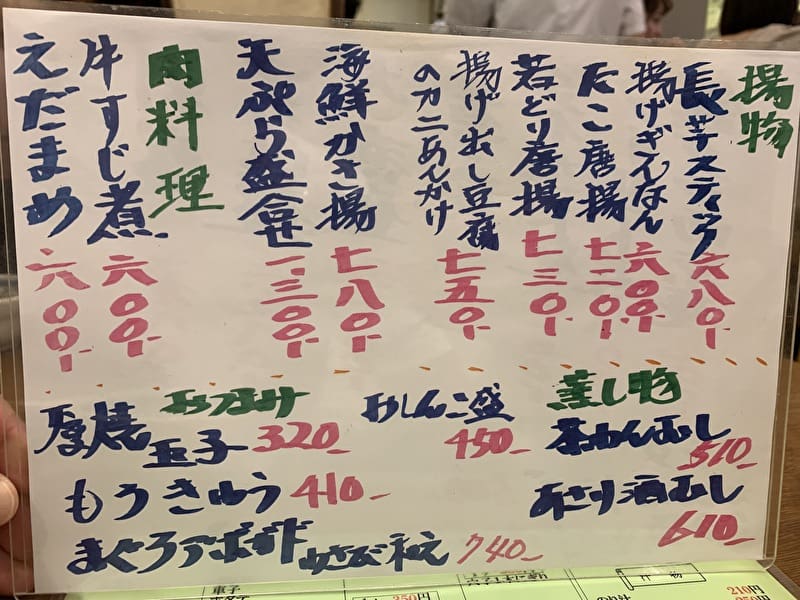 揚物
長芋スティック 六八〇-
揚げぎんなん 六〇〇-
たこ唐揚 七二〇-
若どり唐揚 七三〇-
揚げ出し豆腐
のカニあんかけ 七五〇-
海鮮かき揚 七八〇-
天ぷら盛合せ 一、三〇〇-
肉料理
牛すじ煮 六〇〇-
えだまめ 六〇〇-
蒸し物
茶わんむし 510-
あさり酒むし 610-
おつまみ
おしんこ盛 450-
厚焼玉子 320-
もろきゅう 410-
まぐろアボガドわさび和え 740-
350円
210円